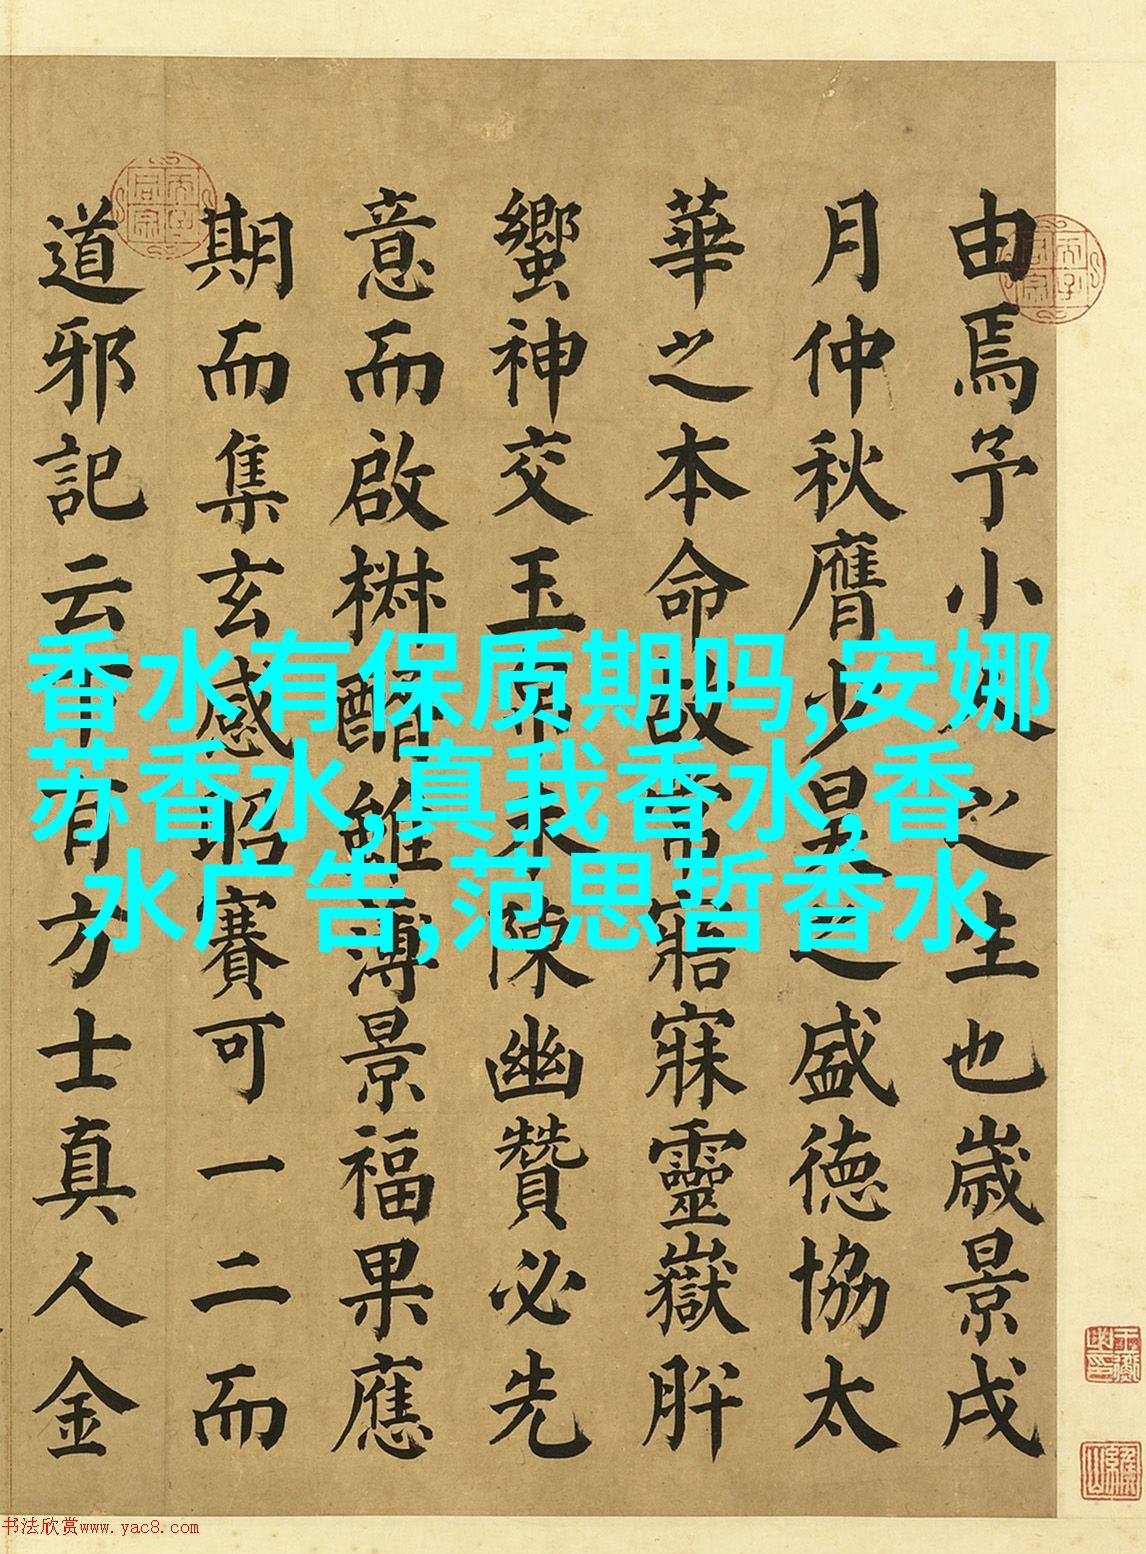 由焉予小之生也歲景戌
月仲秋膺少昊之盛德協太
華之本命故常寤寐靈嶽肸
蠁神交玉帛未陳幽贊必先
意而啟椒醑雖薄景福果應
期而集玄感昭賽可一二而
道邪記云有方士真人金
香水有保质期吗,安娜
苏香水,真我香水,香
水广告,范思哲香水
书法欣赏www.yac8.com